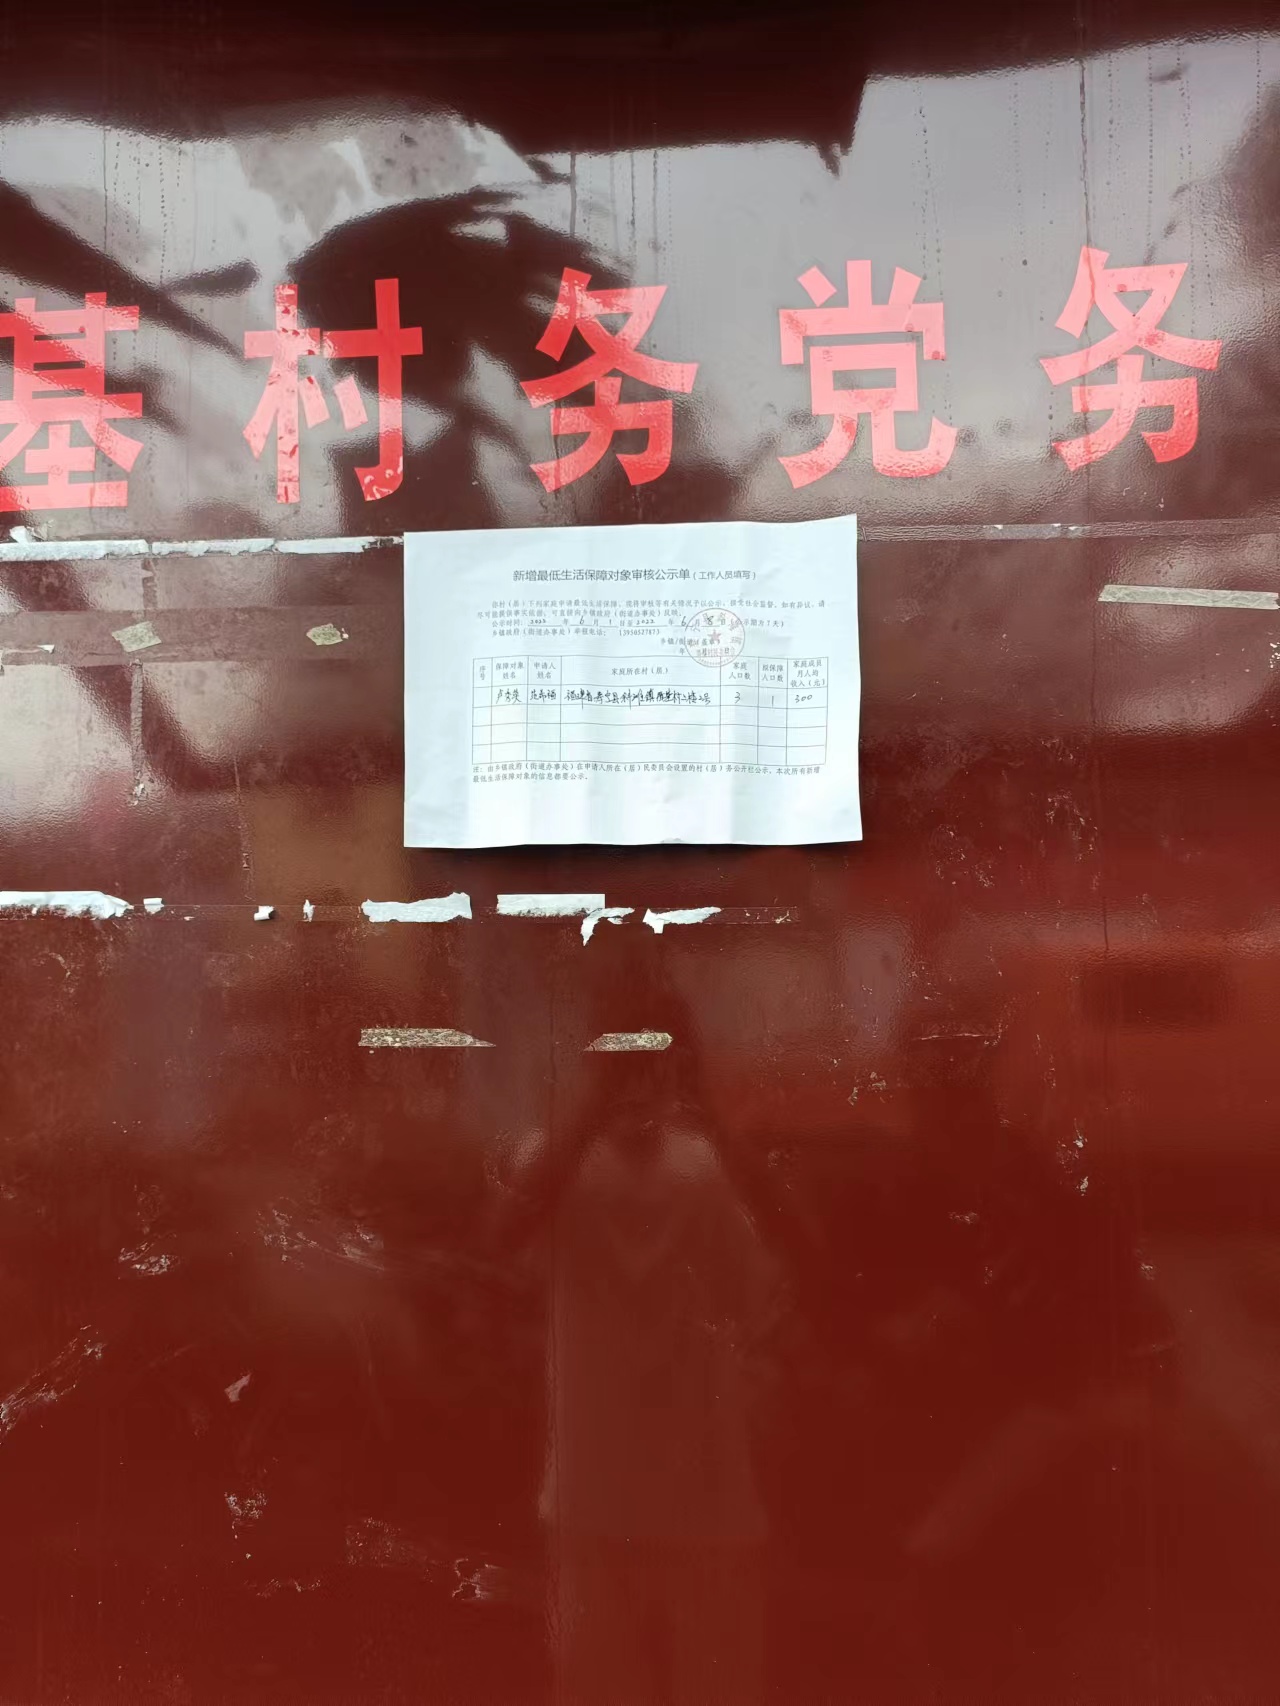 基村务党务
新增最低生活保障对象审核公示单（工作人员填写）
你村（居）下列家庭申请最低生活保障，现将审核等有关情况予以公示，接受社会监督，如有异议，请
尽可能提供事实依据，可直接向乡镇政府（街道办事处）反映。
公示时间：2022 年 6 月 1 日至 2022 年 6 月 8 日（公示期为7天）
乡镇政府（街道办事处）举报电话：13950527873
乡镇/街道（盖章）
年
序号 保障对象姓名 申请人姓名 家庭所在村（居） 家庭人口数 拟保障人口数 家庭成员月人均收入（元）
卢秀英 福建省寿宁县斜滩镇 3 1 300
注：由乡镇政府（街道办事处）在申请人所在（居）民委员会设置的村（居）务公开栏公示，本次所有新增
最低生活保障对象的信息都要公示。